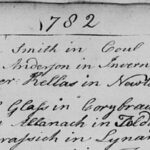 1782
Smith in Coul
Anderson in Invern
er: Kellas in Newto
Glass in Corybrou
Allanach in Told
in Lynar